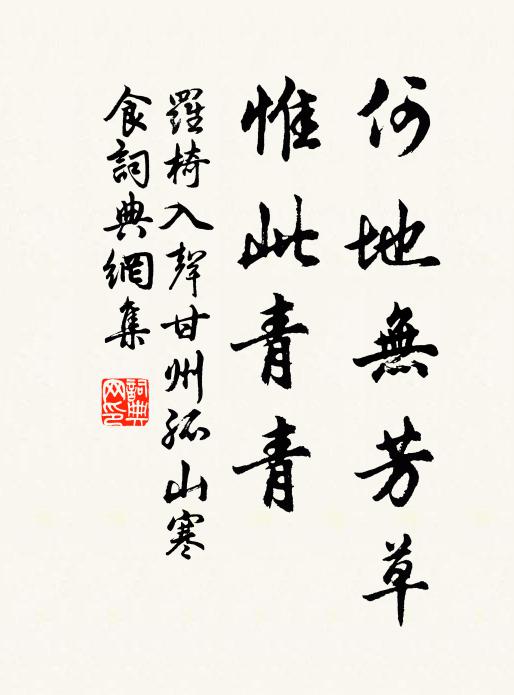 何地無芳草
惟此青青
羅椅八聲甘州孤山寒
食詞典網集
詞典
网印